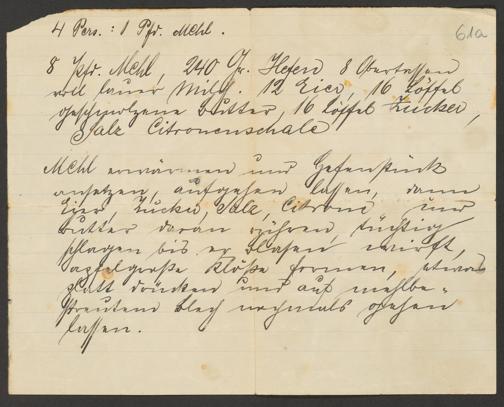 61a
4 Pers. : 1 Pfd. Mehl.
8 Pfd. Mehl, 240 Gr. Hefen 8 Obertassen
voll lauer Milch. 12 Eier, 16 Löffel
geschmolzene Butter, 16 Löffel Zucker,
Salz Citronenschale
Mehl erwärmen und Hefenstück
ansetzen, aufgehen lassen, dann
Eier, Zucker, Salz, Citrone und
Butter daran rühren, tüchtig
schlagen bis er blasen wirft,
apfelgroße Klöße formen, etwas
glatt drücken und auf mehlbe-
streutem Blech nochmals gehen
lassen.